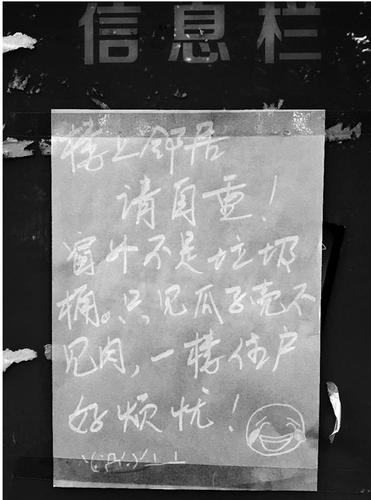 信息栏
楼上邻居
请自重！
窗外不是垃圾
桶。只见瓜子壳不
见肉，一楼住户
好烦忧！